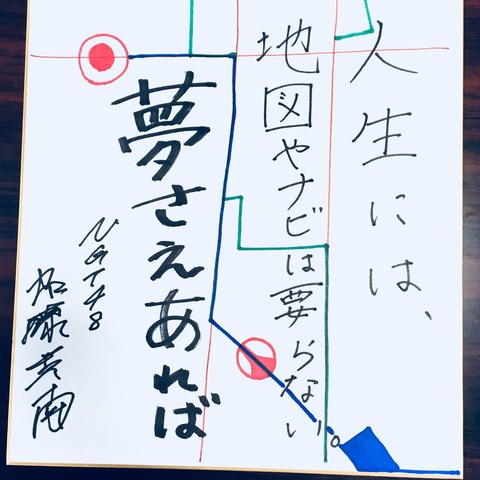 人生には、
地図やナビは要らない!
夢さえあれば
NGT48
加藤美南